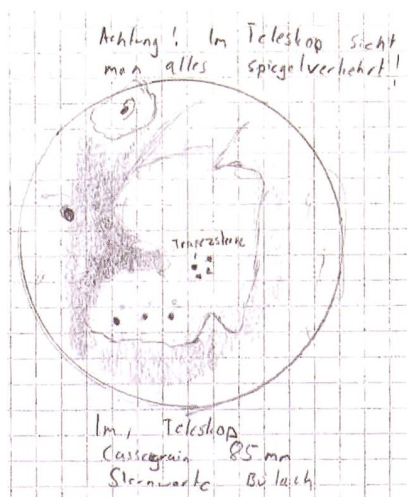 Achtung! Im Teleskop sieht
man alles spiegelverkehrt!
Trapezsterne
Im, Teleskop
Cassegrain 85 mm
Sternwarte Bülach